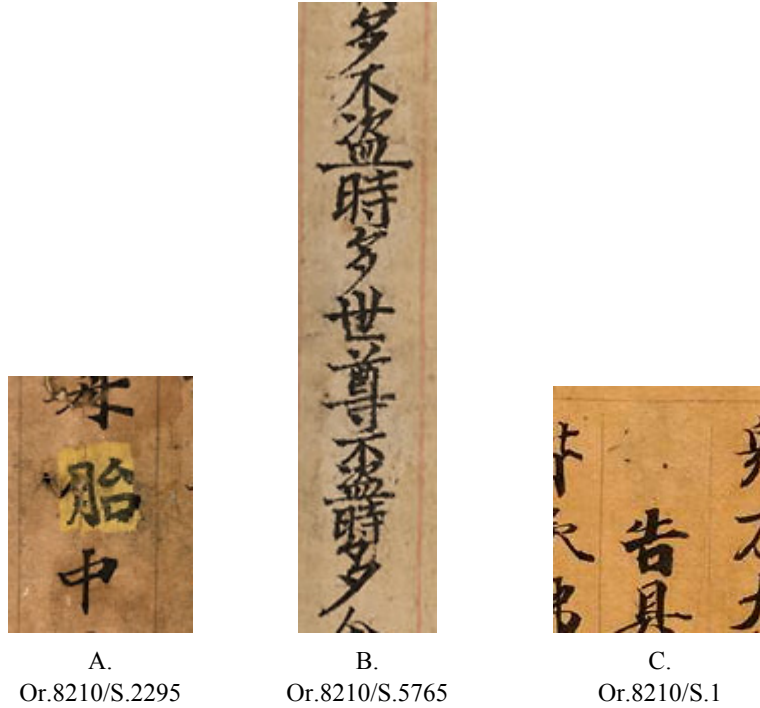 胎中
多不盜時多世尊不盜時多
告具
A.
Or.8210/S.2295
B.
Or.8210/S.5765
C.
Or.8210/S.1